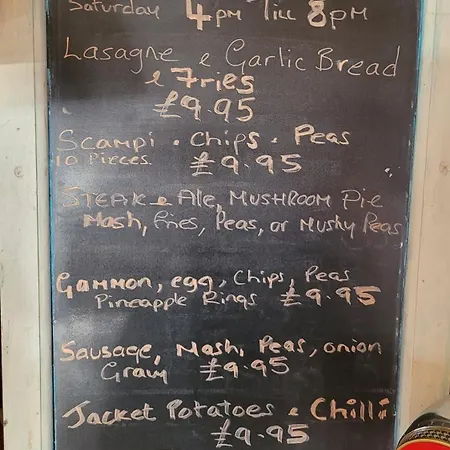 Saturday 4pm Till 8pm
Lasagne & Garlic Bread
& Fries
£9.95
Scampi . Chips . Peas
10 Pieces. £9.95
STEAK & Ale, MUSHROOM Pie
Mash, Fries, Peas, or Mushy Peas
Gammon, egg, Chips, Peas
Pineapple Rings £9.95
Sausage, Mash, Peas, onion
Gravy £9.95
Jacket Potatoes & Chilli
£9.95